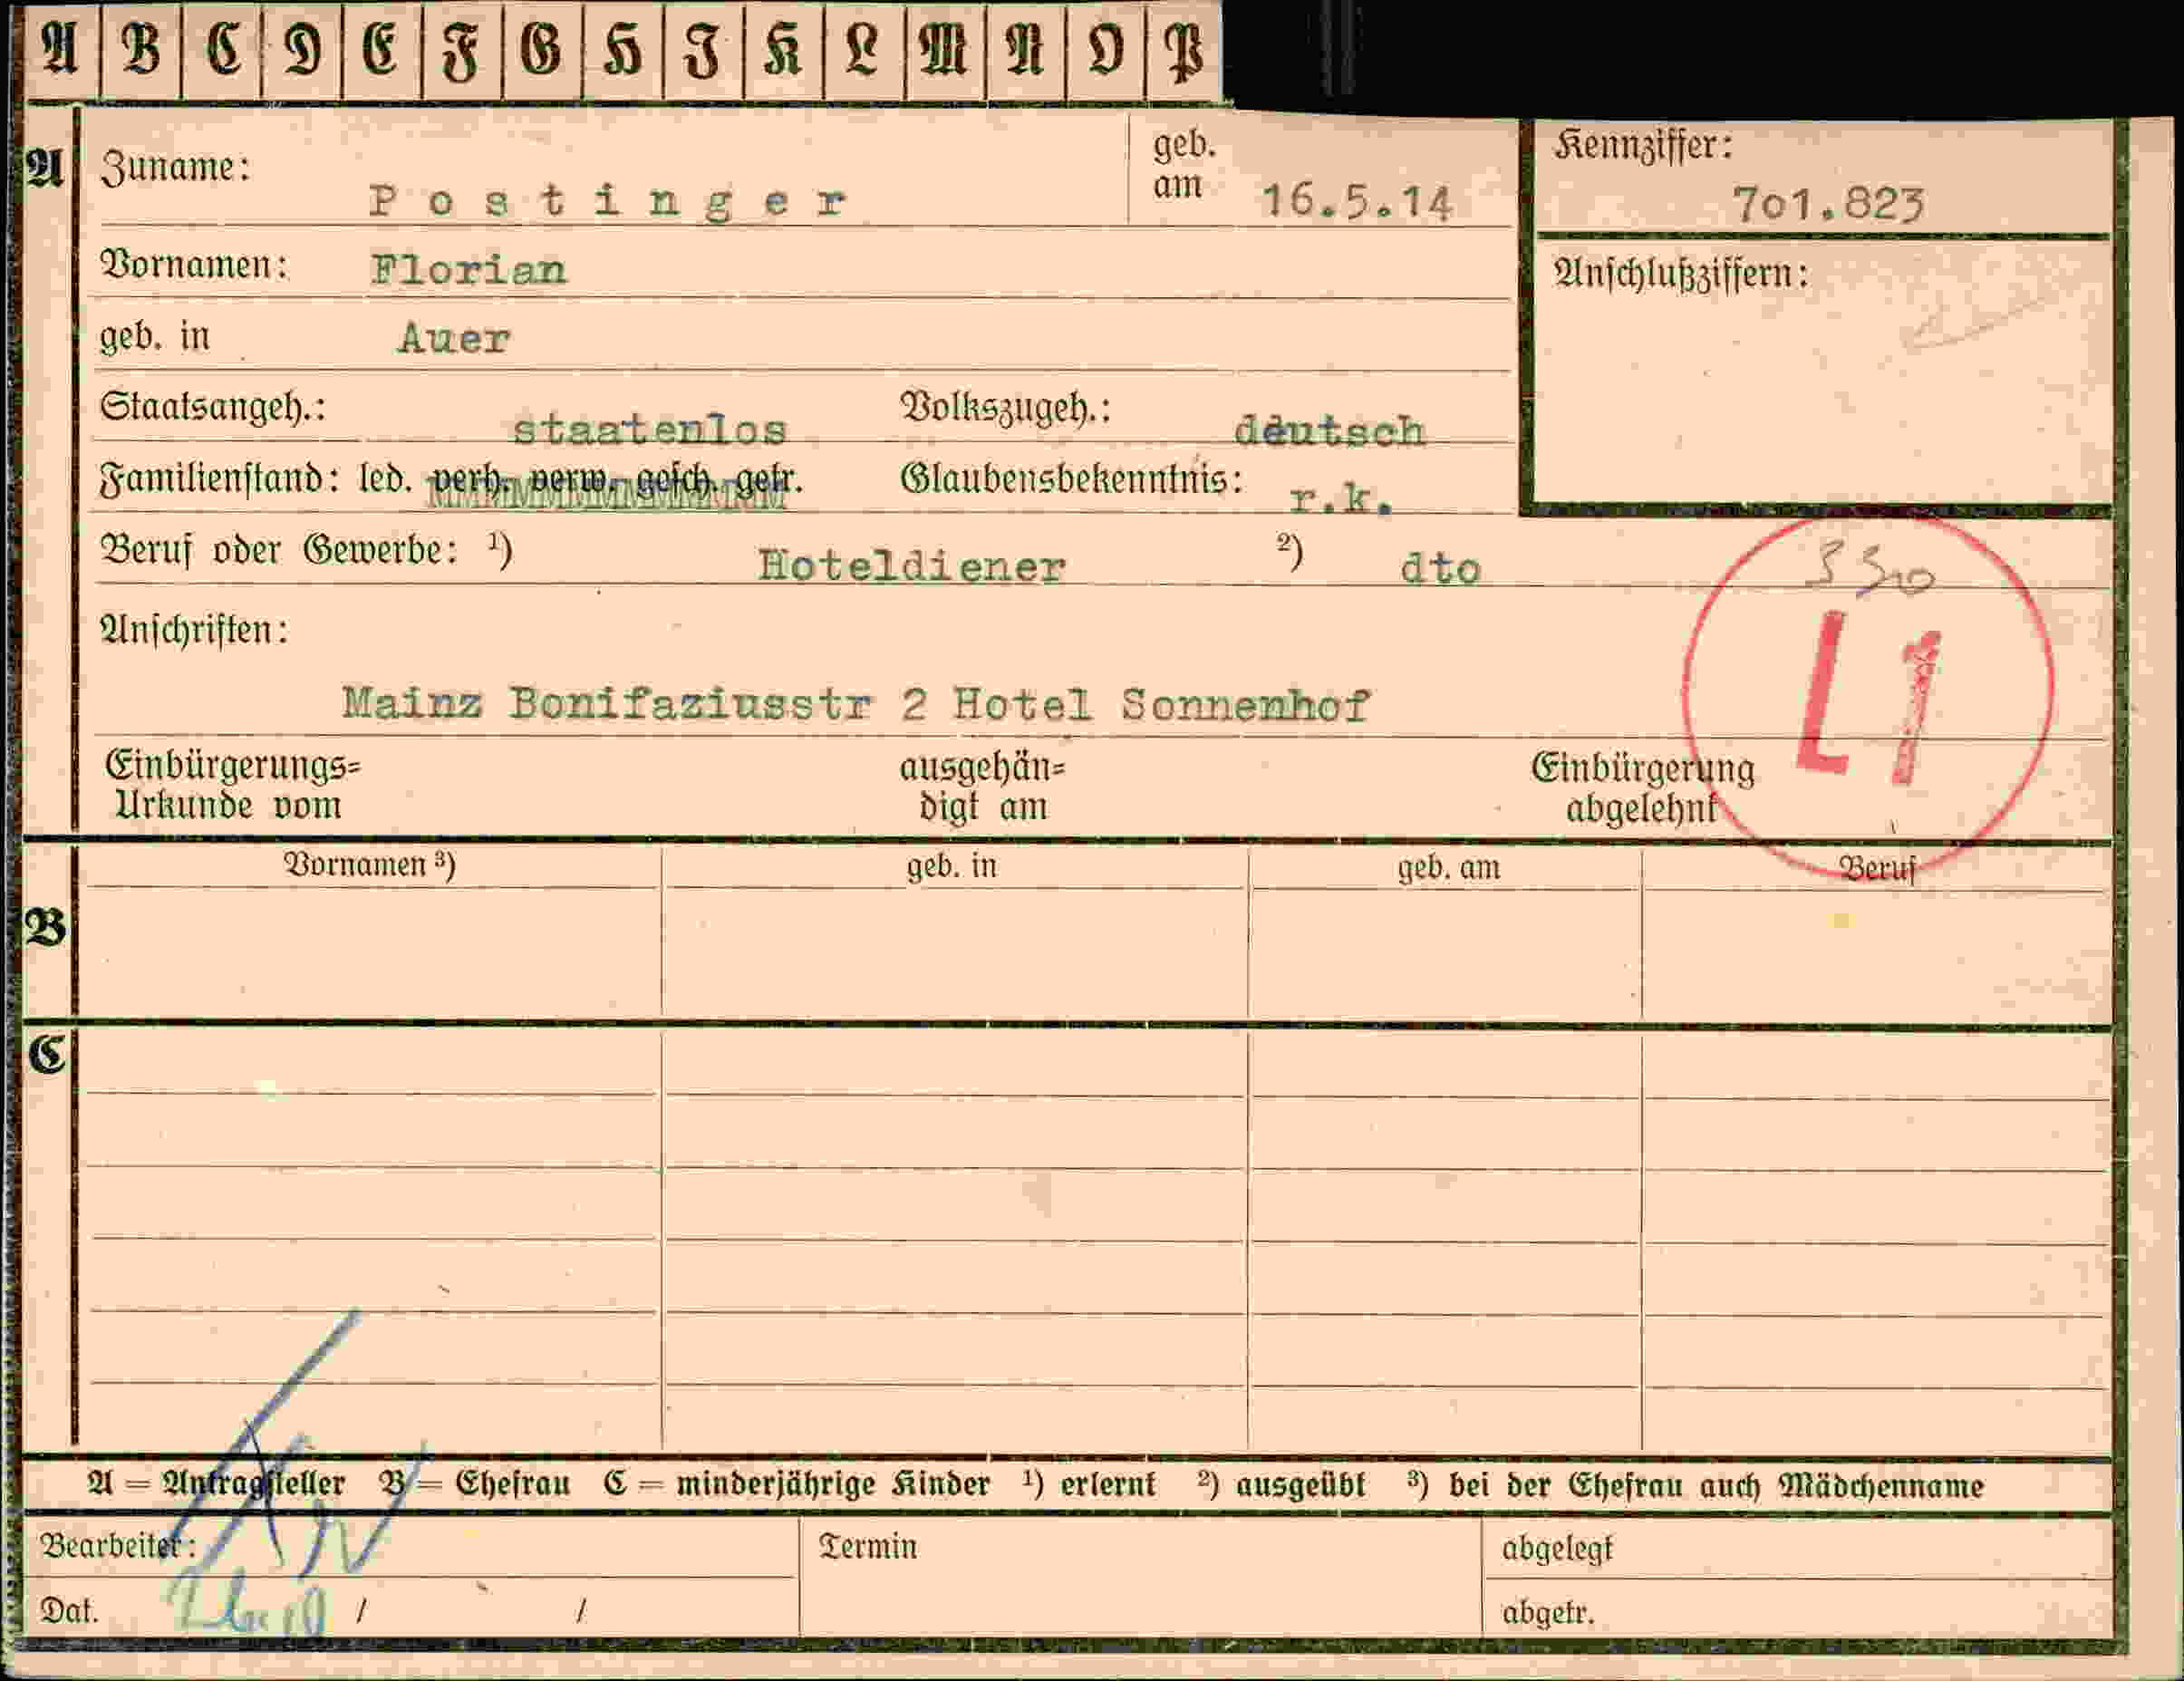 A B C D E F G H I K L M N O P
A Zuname: Postinger geb. am 16.5.14 Kennziffer: 701.823
Vornamen: Florian Anschlußziffern:
geb. in Auer
Staatsangeh.: staatenlos Volkszugeh.: deutsch
Familienstand: led. verh. verw. gesch. getr. Glaubensbekenntnis: r.k.
Beruf oder Gewerbe: ¹) Hoteldiener ²) dto
L1
Anschriften:
Mainz Bonifaziusstr 2 Hotel Sonnenhof
Einbürgerungs= ausgehän= Einbürgerung
Urkunde vom digt am abgelehnt
Vornamen ³) geb. in geb. am Beruf
B
C
A = Antragsteller B = Ehefrau C = minderjährige Kinder ¹) erlernt ²) ausgeübt ³) bei der Ehefrau auch Mädchenname
Bearbeiter: Termin abgelegt
Dat. / / abgetr.